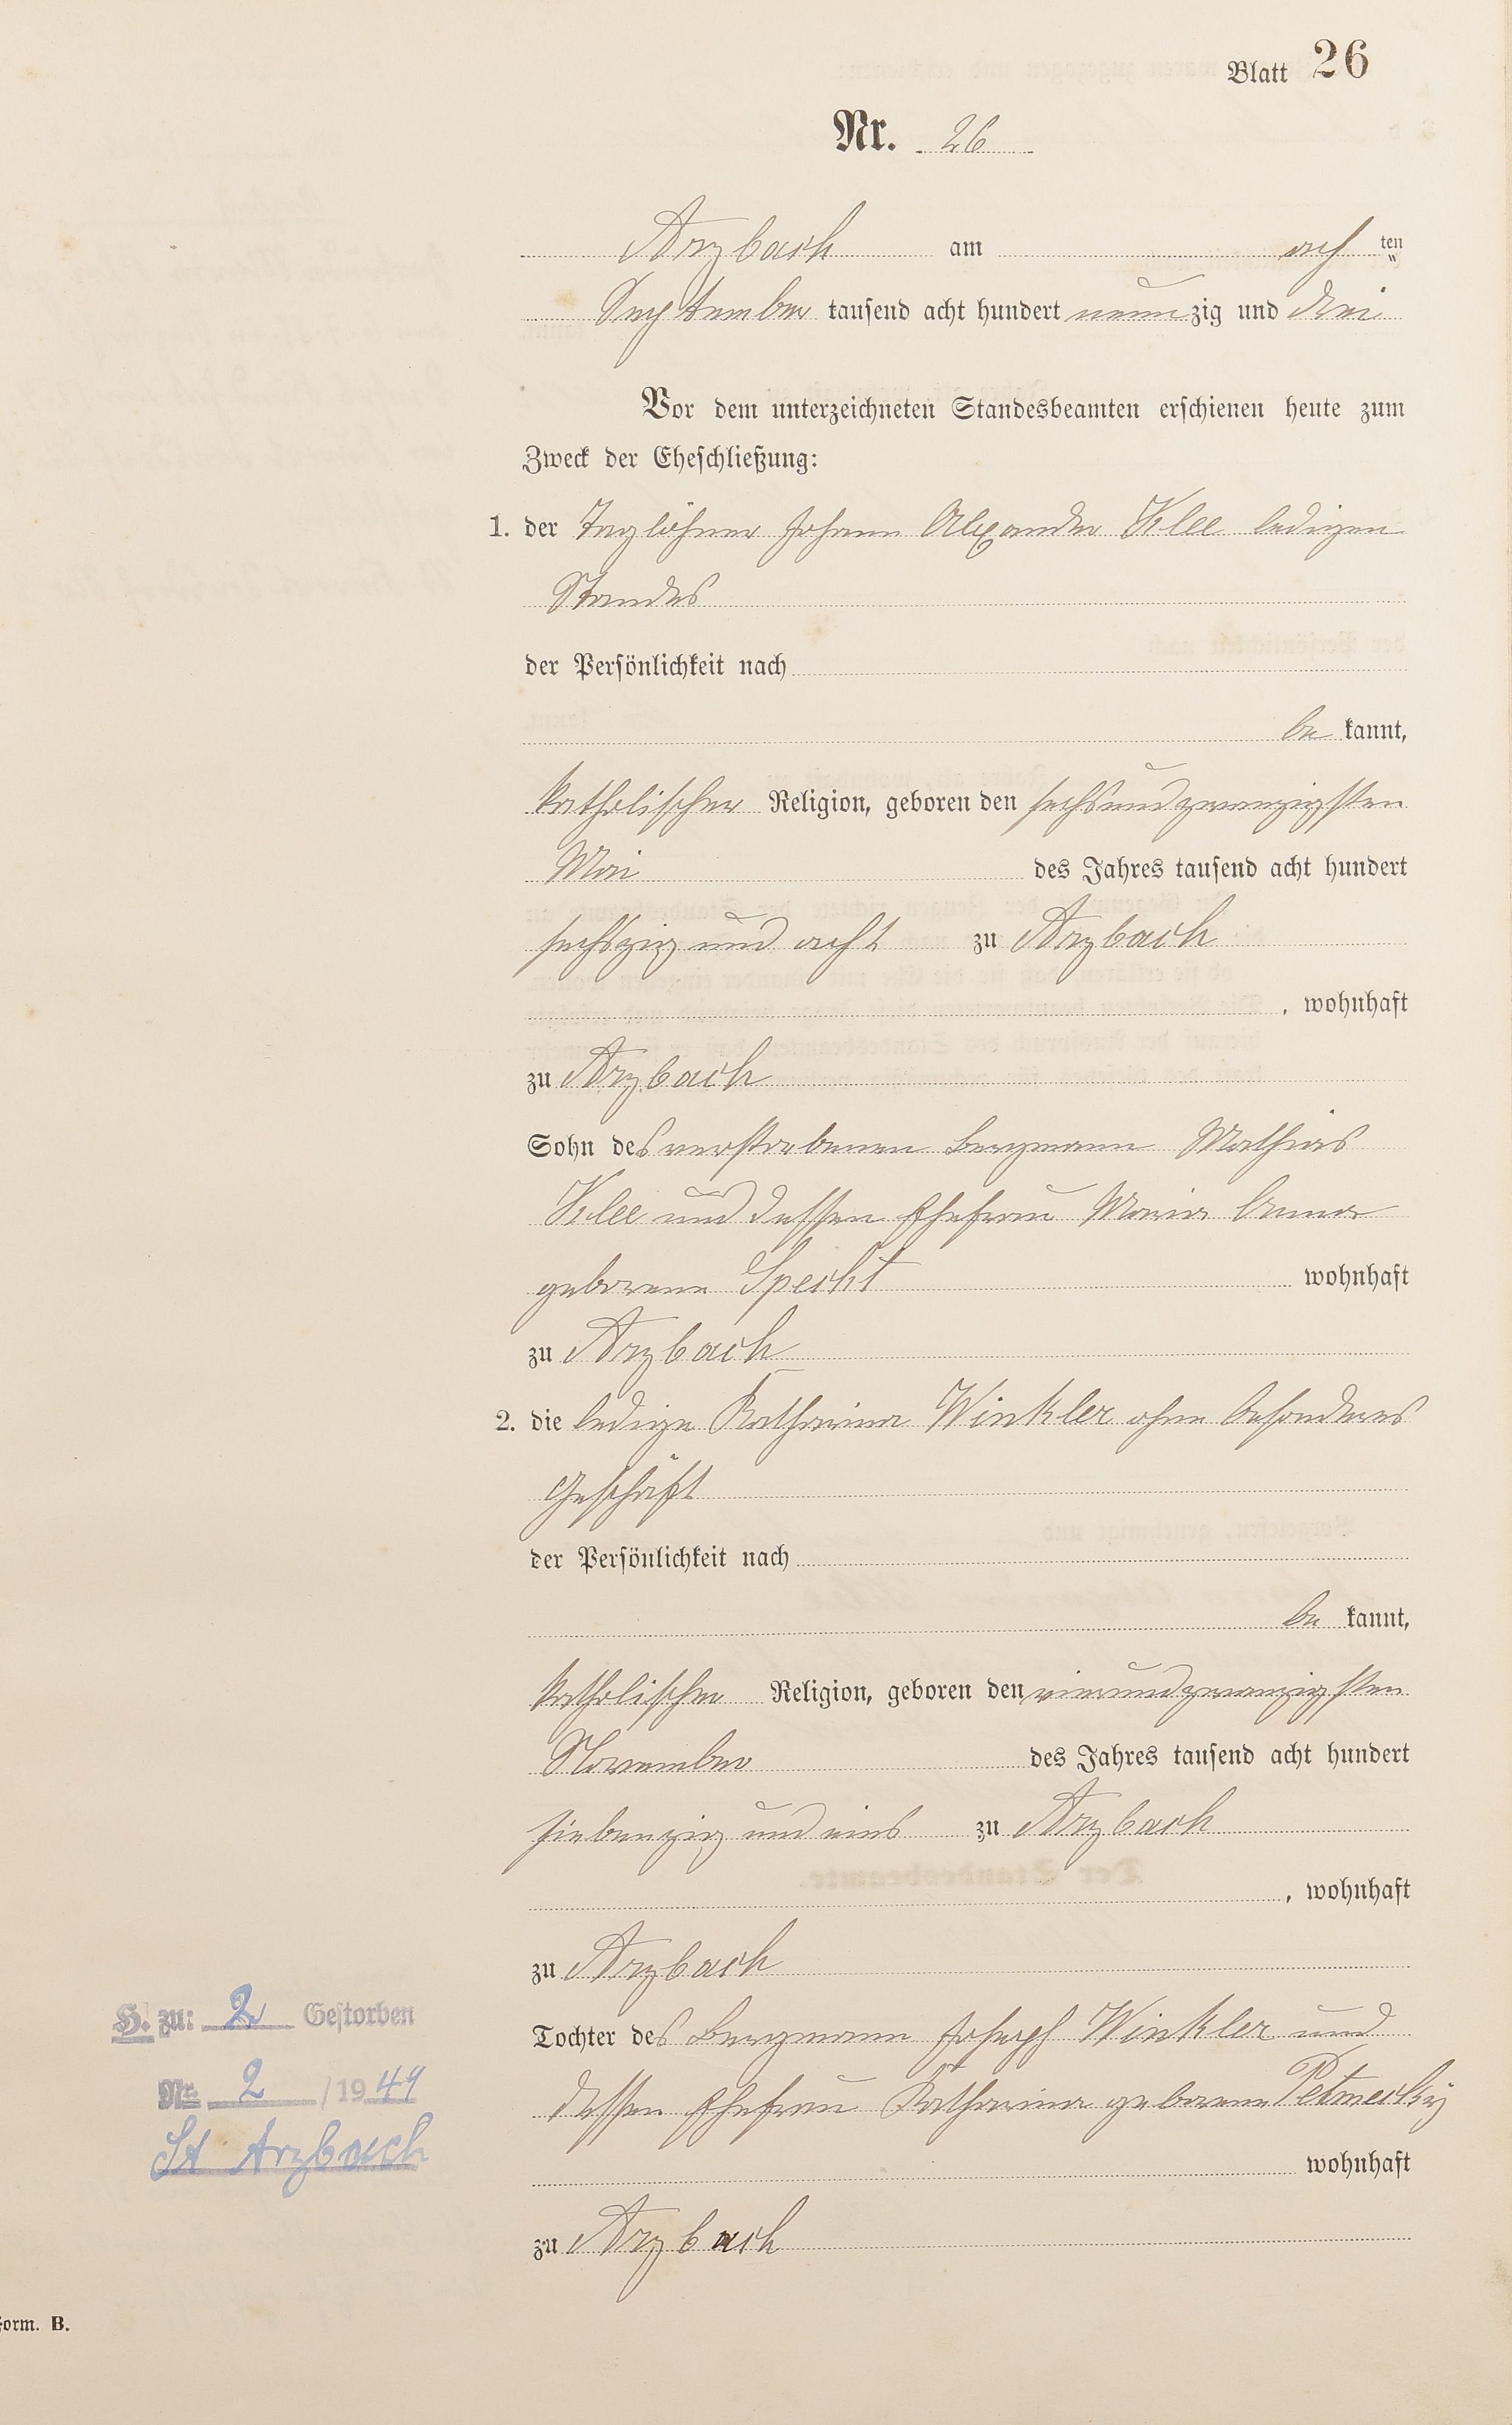 Blatt 26
Nr. 26
Arzbach am acht ten
September tausend acht hundert neunzig und drei
Vor dem unterzeichneten Standesbeamten erschienen heute zum
Zweck der Eheschließung:
1. der Taglöhner Johann Alexander Klee ledigen
Standes
der Persönlichkeit nach
be kannt,
katholischer Religion, geboren den sechsundzwanzigsten
Mai des Jahres tausend acht hundert
sechszig und acht zu Arzbach
, wohnhaft
zu Arzbach
Sohn des verstorbenen Bergmann Mathias
Klee und dessen Ehefrau Maria Anna
geborene Specht wohnhaft
zu Arzbach
2. die ledige Katharina Winkler ohne besonderes
Geschäft
der Persönlichkeit nach
be kannt,
katholischer Religion, geboren den vierundzwanzigsten
November des Jahres tausend acht hundert
siebenzig und eins zu Arzbach
, wohnhaft
zu Arzbach
H. zu: 2 Gestorben
Nr. 2 /1949
St Arzbach
Tochter des Bergmann Joseph Winkler und
dessen Ehefrau Katharina geborene
wohnhaft
zu Arzbach
Form. B.